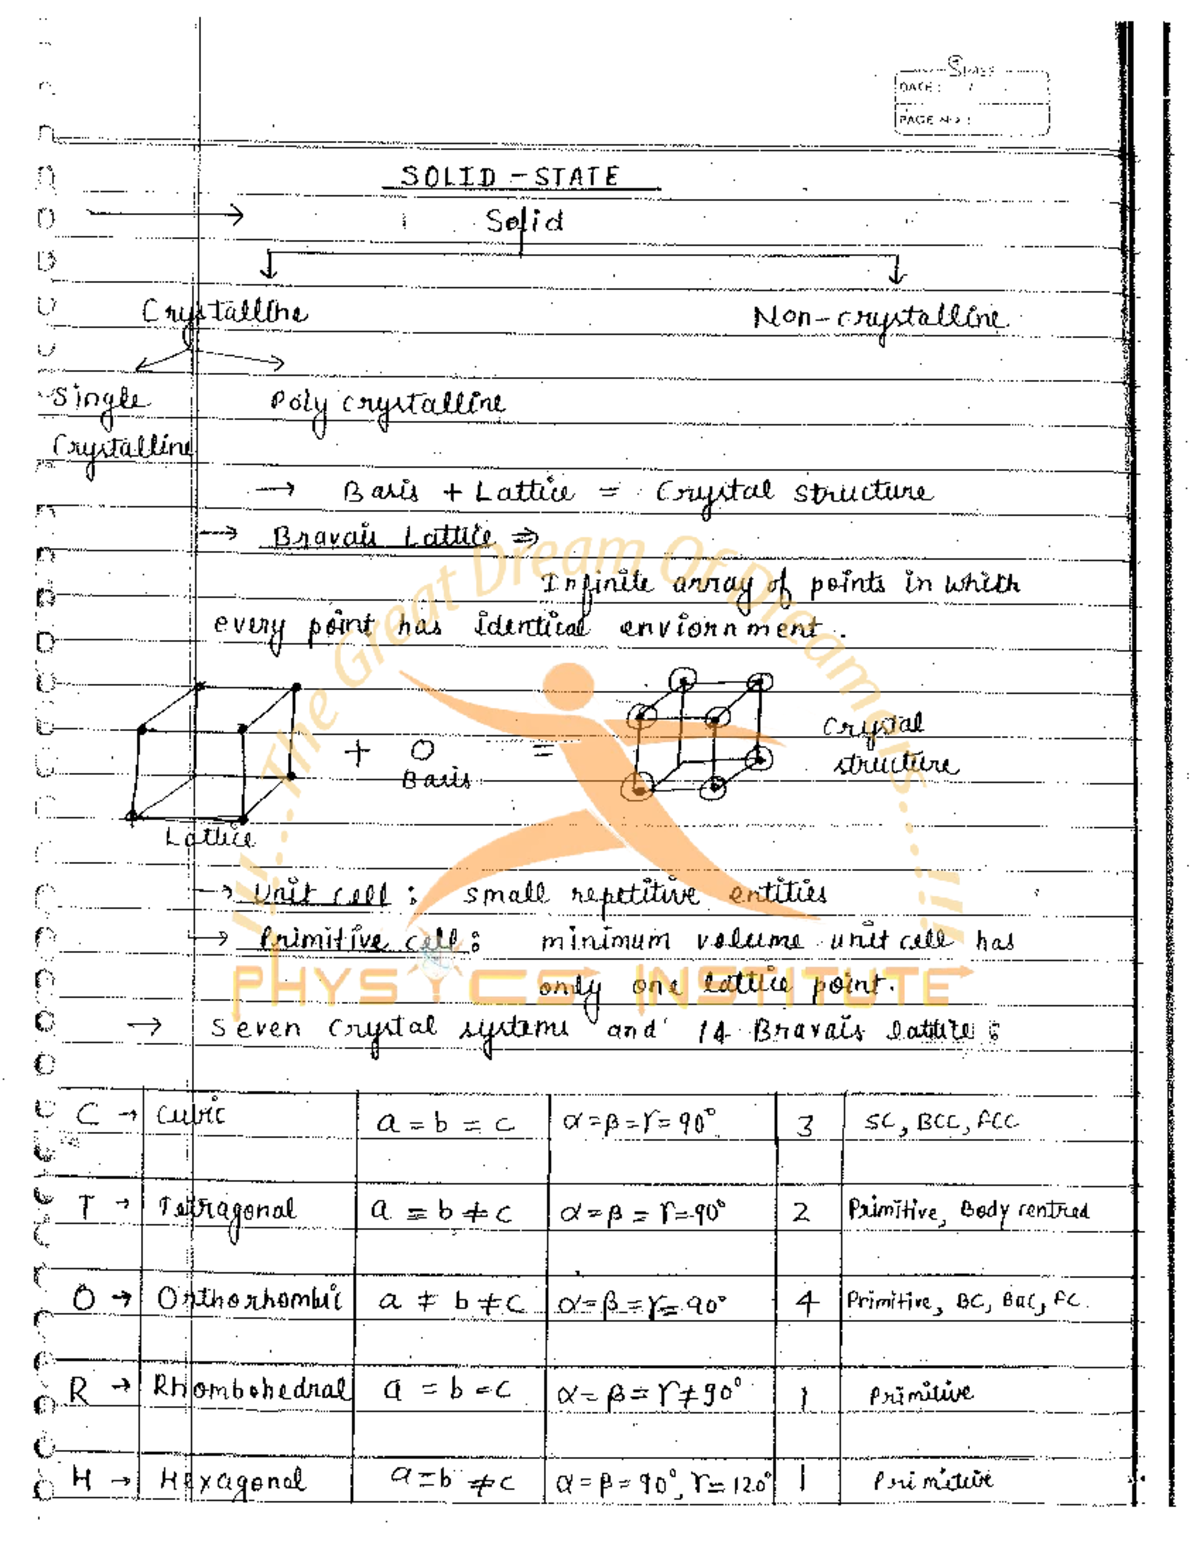 Sines
DATE: /
PAGE NO:
SOLID - STATE
Solid
Crystalline Non-crystalline
Single Poly crystalline
Crystalline
→ Basis + Lattice = Crystal structure
→ Bravais Lattice ⇒
Infinite array of points in which
every point has identical enviornment.
+ O = Crystal
Basis structure
Lattice
→ Unit cell : small repetitive entities
→ Primitive cell : minimum volume unit cell has
only one lattice point.
→ Seven Crystal systems and 14 Bravais lattice :
C → Cubic a = b = c α=β=γ=90° 3 SC, BCC, FCC
T → Tetragonal a = b ≠ c α=β=γ=90° 2 Primitive, Body centred
O → Orthorhombic a ≠ b ≠ c α=β=γ=90° 4 Primitive, BC, BaC, FC.
R → Rhombohedral a = b = c α=β=γ≠90° 1 Primitive
H → Hexagonal a=b ≠c α=β=90°, γ=120° 1 Primitive
!!!...The Great Dream Of Dreamers...!!!
PHYSICS INSTITUTE